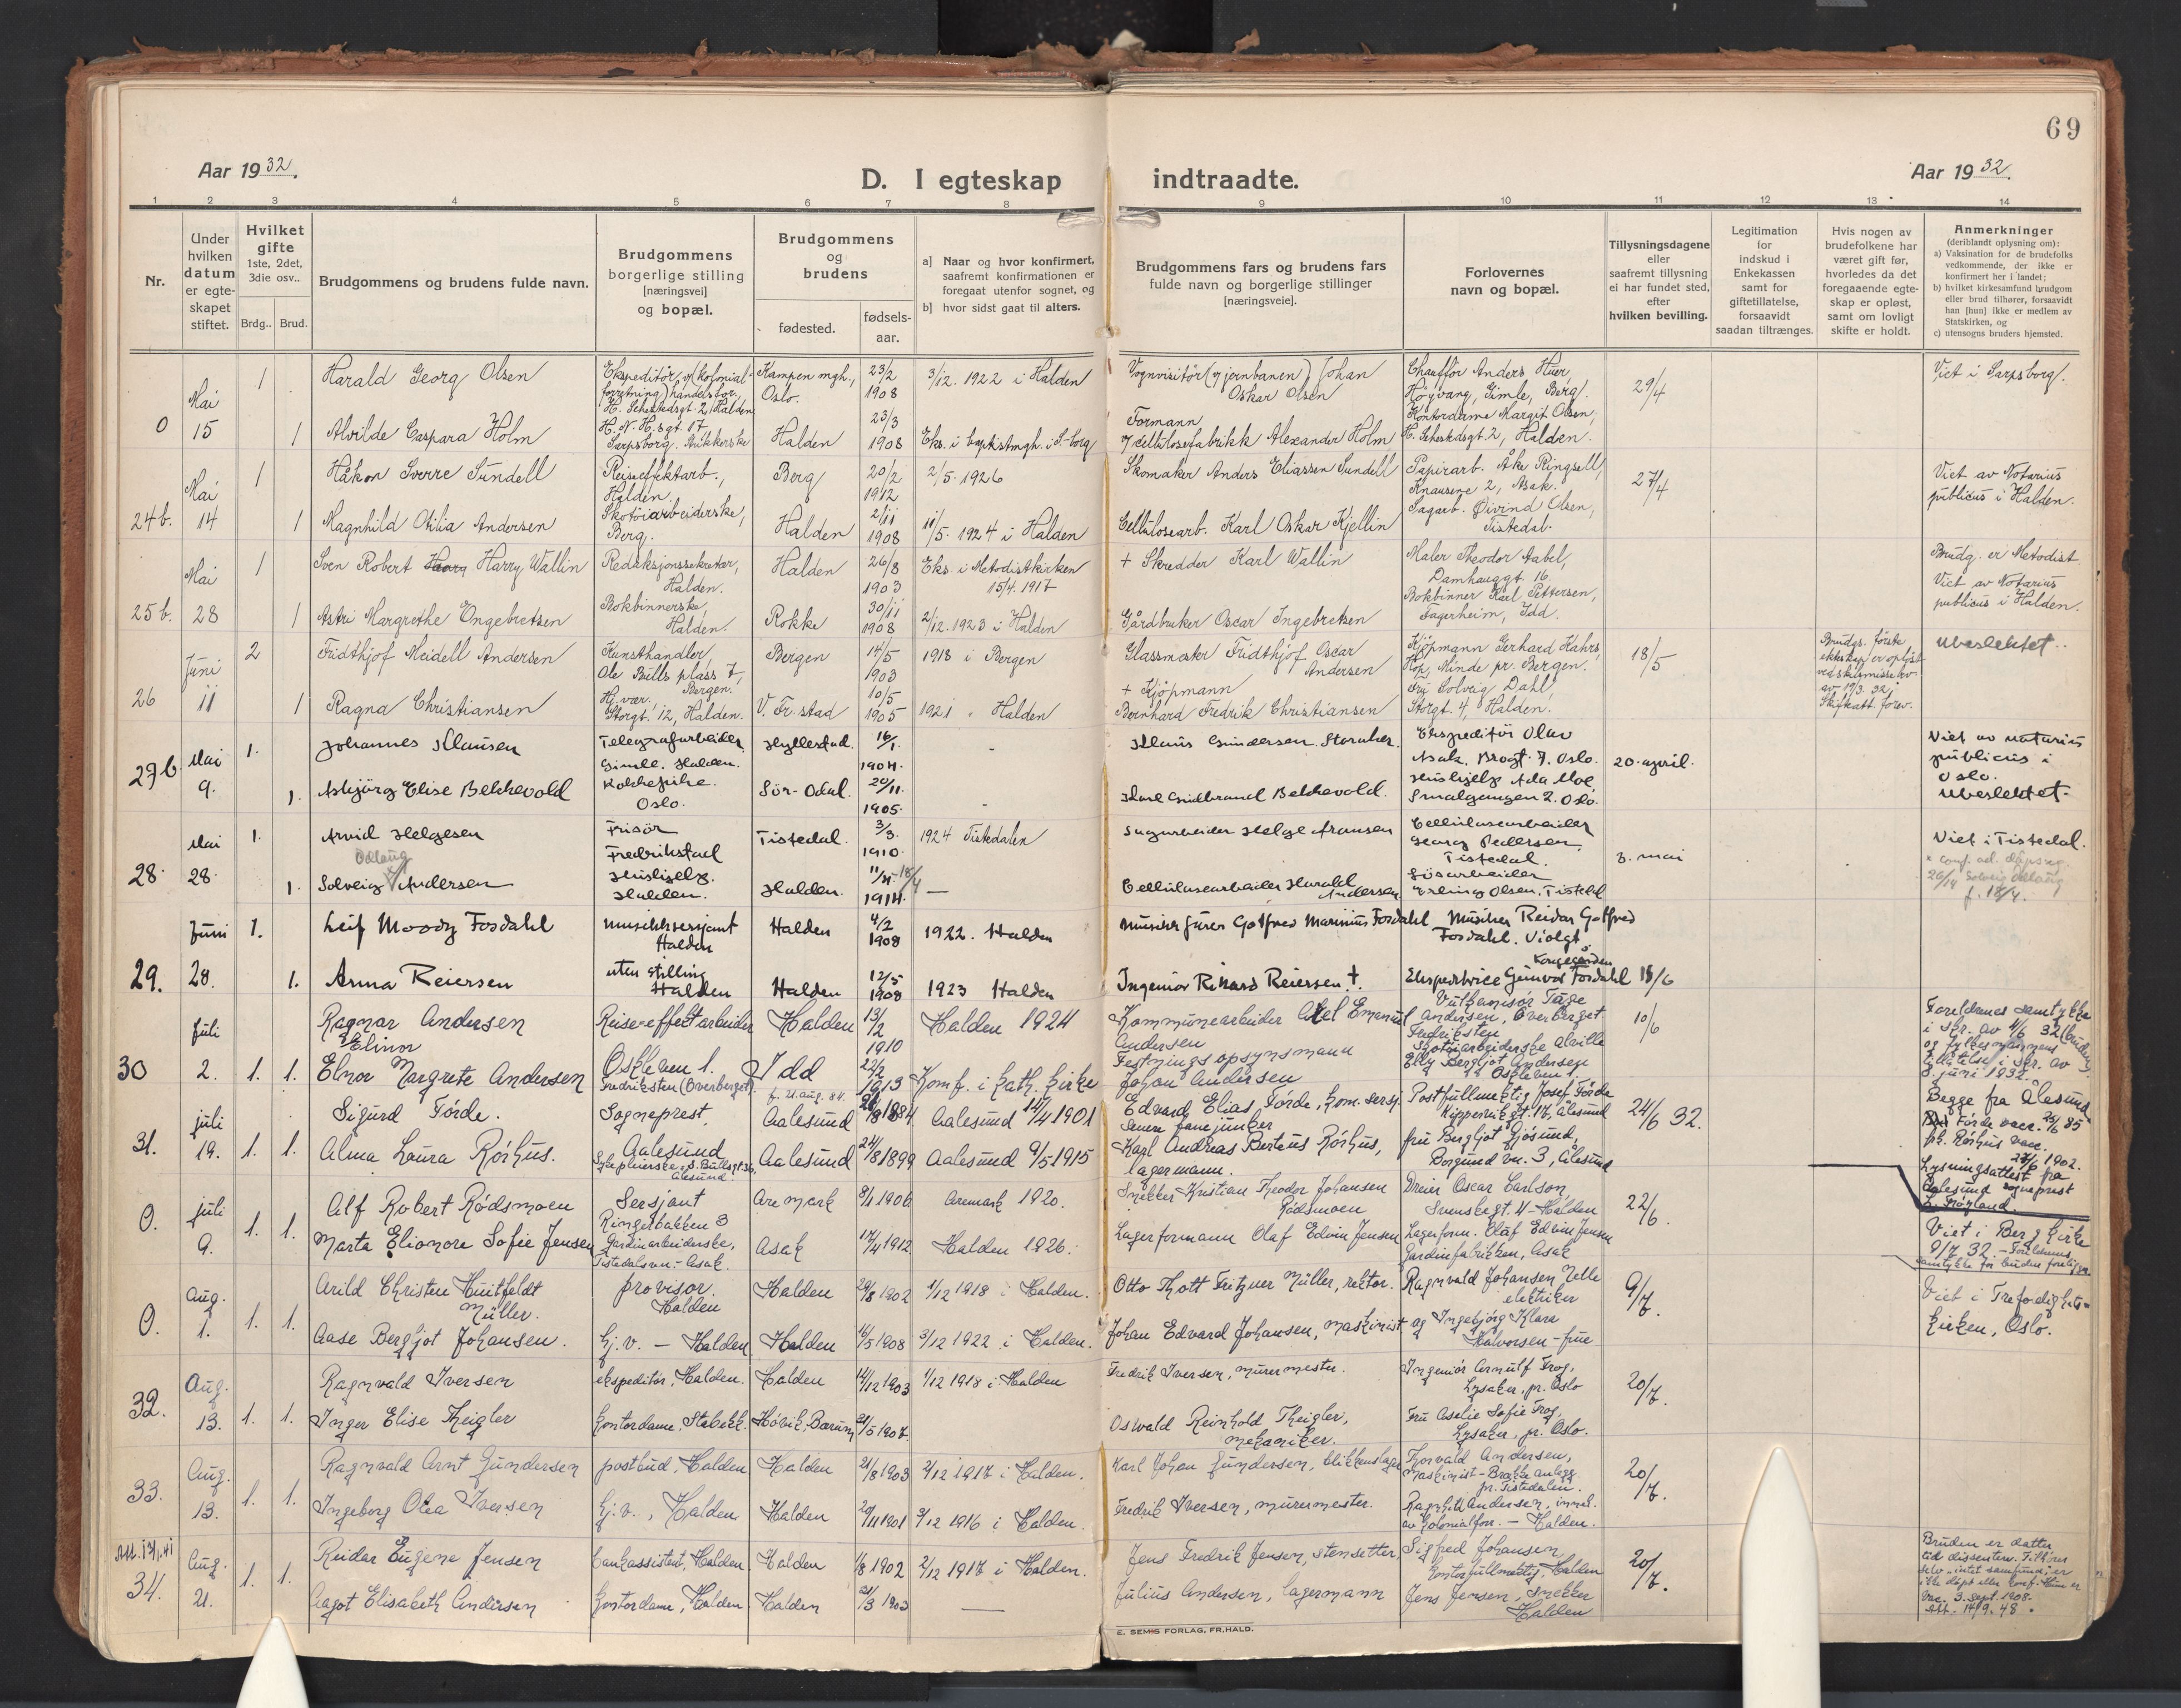 69
Aar 1932.
D. I egteskap indtraadte.
Aar 1932.
1 2 3 4 5 6 7 8 9 10 11 12 13 14
Nr.
Under hvilken datum er egteskapet stiftet.
Hvilket gifte
1ste, 2det, 3die osv..
Brdg.. Brud.
Brudgommens og brudens fulde navn.
Brudgommens borgerlige stilling [næringsvei] og bopæl.
Brudgommens og brudens
fødested.
fødsels-aar.
a] Naar og hvor konfirmert, saafremt konfirmationen er foregaat utenfor sognet, og
b] hvor sidst gaat til alters.
Brudgommens fars og brudens fars fulde navn og borgerlige stillinger [næringsveie].
Forlovernes navn og bopæl.
Tillysningsdagene eller saafremt tillysning ei har fundet sted, efter hvilken bevilling.
Legitimation for indskud i Enkekassen samt for giftetillatelse, forsaavidt saadan tiltrænges.
Hvis nogen av brudefolkene har været gift før, hvorledes da det foregaaende egteskap er opløst, samt om lovligt skifte er holdt.
Anmerkninger
(deriblandt oplysning om):
a) Vaksination for de brudefolks vedkommende, der ikke er konfirmert her i landet;
b) hvilket kirkesamfund brudgom eller brud tilhører, forsaavidt han [hun] ikke er medlem av Statskirken, og
c) utensogns bruders hjemsted.
0 Mai 15 1 Harald Georg Olsen
H. Schestedsgt. 2, Halden
Kampen mgh., Oslo. 23/2 1908 3/12. 1922 i Halden
Vognvisitör (v/ jernbanen) Johan Oskar Olsen
Chauffør Anders Huer, Høyvang, Gimle, Berg.
29/4
Viet i Sarpsborg.
1 Alvilde Caspara Holm
Sarpsborg.
Halden 23/3 1908 Eks. i baptistmgh. i S-borg
Formann v/ cellulosefabrikk Alexander Holm
Kontordame Margit Olsen, H. Schestedsgt. 2, Halden.
24b. Mai 14 1 Håkon Sverre Sundell
Reiseeffektarb., Halden.
Berg 20/2 1912 2/5. 1926
Skomaker Anders Eliassen Sundell
Papirarb. Åke Ringsell, Knausene 2, Asak.
27/4
Viet av Notarius publicus i Halden.
1 Magnhild Otilia Andersen
Skotöiarbeiderske, Berg.
Halden 2/11 1908 11/5. 1924 i Halden
Cellulosearb. Karl Oskar Kjellin
Sagarb. Øivind Olsen, Tistedal.
25b. Mai 28 1 Sven Robert Harry Wallin
Redaksjonssekretær, Halden.
Halden 26/8 1903 Eks. i Metodistkirken 15/4. 1917
+ Skredder Karl Wallin
Maler Theodor Aabel, Damhauggt. 16.
Brudg. er Metodist.
Viet av Notarius publicus i Halden.
1 Astri Margrethe Engebretsen
Bokbinnerske, Halden.
Rokke 30/11 1908 2/12. 1923 i Halden
Gårdbruker Oscar Ingebretsen
Bokbinner Karl Pettersen, Fagerheim, Idd.
26 Juni 11 2 Fridthjof Meidell Andersen
Kunsthandler, Ole Bulls plass 7, Bergen.
Bergen 14/5 1903 1918 i Bergen
Glassmester Fridthjof Oscar Andersen
Kjöpmann Gerhard Hahrs, Hop, Minde pr. Bergen.
18/5
Ubeslektet..
1 Ragna Christiansen
Hj.vær., Storgt. 12, Halden.
V. Fr.stad 10/5 1905 1921 " Halden
+ Kjöpmann Bernhard Fredrik Christiansen
Frk Solveig Dahl, Storgt. 4, Halden.
27b Mai 9. 1. Johannes Klausen
Telegrafarbeider Gimle. Halden.
Hyllestad. 16/1. 1904. -
Klaus Gundersen
Ekspeditör Olav Asak. Oslo.
20. april.
Viet av notarius publicus i Oslo.
Ubeslektet.
1. Asbjörg Elise Bekkevold
Kokkepike. Oslo.
Sör-Odal. 20/11. 1905. -
Karl Gudbrand Bekkevold.
Hushjelp Ada Moe, Smalgangen 2. Oslo.
28. Mai 28. 1. Arvid Helgesen
Frisör Fredrikstad
Tistedal. 3/3. 1910. 1924 Tistedalen
Sagarbeider Helge Aronsen
Cellulosearbeider Georg Pedersen, Tistedal.
3. mai
Viet i Tistedal.
Odlaug
1. Solveig Andersen
Hushjelp. Halden.
Halden. 1914. —
Cellulosearbeider Harald Andersen
Erling Olsen. Tistedal
29. Juni 28. 1. Leif Moody Fosdahl
Musikksersjant Halden
Halden 4/2 1908 1922. Halden
Musiker Reidar Gotfred Fosdahl. Violgt.
1. Anna Reiersen
uten stilling Halden
Halden 12/5 1908 1923 Halden
Ingeniör Rikard Reiersen. +.
Ekspeditrice Gunvor Fosdahl
18/6
30 Juli 2. 1. 1. Ragnar Andersen
Reiseeffektarbeider
Halden 13/2 1910 Halden 1924
Kommunearbeider Axel Emanuel Andersen
Vulkanisör Tage Andersen, Överberget Fredriksten
10/6
Elinor
Elnor Margrete Andersen
Oskleven 1. Fredriksten (Överberget)
Idd 22/2 1913 Komf. i kath. kirke
Festningsopsynsmann Johan Andersen
Skotöiarbeiderske Alvilde Elly Bergljot Andersen Oskleven 1.
31. juli 19. 1. 1. Sigurd Förde.
Sogneprest, Aalesund
f. 21. aug. 84.
Aalesund Aalesund 14/4 1901
Edvard Elias Förde, kom. sersj. senere fanejunker
Postfullmektig Josef Förde Kipperviksgt. 17, Ålesund
24/6 32.
Begge fra Ålesund
Alma Laura Rörhus.
Aalesund 24/8 1899 Aalesund 9/5 1915
Karl Andreas Berteus Rörhus, lagermann.
fru Bergljot Gjösund, Borgund vn. 3, Ålesund
Lysningsattest fra Aalesund sogneprest
0. juli 9. 1. 1. Alf Robert Rödsmoen
Sersjant Ringerbakken 3
Aremark 8/1 1906 Aremark 1920.
Snekker Kristian Theodor Johansen Rödsmoen
Dreier Oscar Carlson Svensksgt. 4 - Halden
22/6.
Marta Elionore Sofie Jensen
Gardinarbeiderske, Tistedalsvn. - Asak.
Asak 17/4 1912 Halden 1926.
Lagerformann Olaf Edvin Jensen
Lagerform. Olaf Edvin Jensen Gardinfabrikken, Asak
Viet i Berg kirke 9/7 32.
0. Aug. 1. 1. 1. Arild Christen Huitfeldt Müller.
provisor. Halden
Halden 29/8 1902 1/12 1918 i Halden.
Otto Thott Fritzner Müller, rektor.
Ragnvald Johansen Melle elektriker
9/7.
Viet i Trefoldighetskirken, Oslo.
Aase Bergljot Johansen.
hj.v. — Halden
Halden 16/5 1908 3/12 1922 i Halden.
Johan Edvard Johansen, maskinist
og Ingebjörg Klara Halvorsen - frue
32. Aug. 13. 1. 1. Ragnvald Iversen
ekspeditör, Halden.
Halden 14/12 1903 1/12 1918 i Halden
Fredrik Iversen, murermester.
Ingeniör Arnulf Frog, Lysaker, pr. Oslo
20/7.
Inger Elise Theigler
Kontordame, Stabekk.
Hövik, Bærum 21/5 1907.
Oswald Reinhold Theigler, mekaniker.
Fru Aselie Sofie Frog, Lysaker, pr. Oslo.
33. Aug. 13. 1. 1. Ragnvald Arnt Gundersen
postbud, Halden
Halden 21/8 1903 2/12 1917 i Halden.
Karl Johan Gundersen, blikkenslager
Thorvald Andersen, maskinist - Brekke anlegg pr. Tistedalen.
20/7.
Ingeborg Olea Iversen
hj.v., Halden
Halden 20/11 1901 3/12 1916 i Halden.
Fredrik Iversen, murermester.
Ragnhild Andersen, inneh. av kolonialforr. — Halden.
34. Aug. 21. 1. 1. Reidar Eugene Jensen
bankassistent, Halden
Halden 1/8 1902 2/12 1917 i Halden.
Jens Fredrik Jensen, stensetter,
Sigfred Johansen, Kontorfullmektig, Halden
20/7.
Bruden er datter
Att. 14/9. 48.
Aagot Elisabeth Andersen
Kontordame, Halden
Halden 21/3 1903 —
Julius Andersen, lagermann
Jens Jensen, snekker Halden
E. SEMS FORLAG, FR.HALD.